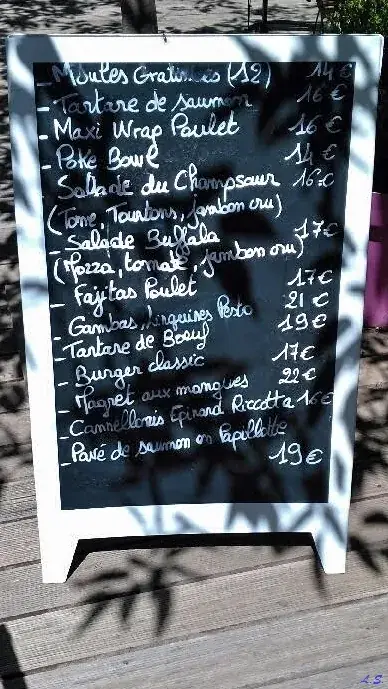 - Moules Gratinées (12) 14€
- Tartare de saumon 16€
- Maxi Wrap Poulet 16€
- Poke Bowl 14€
Salade du Champsaur 16€
(Tome, Tourtons, jambon cru)
- Salade Buffala 17€
(Mozza, tomate, jambon cru)
- Fajitas Poulet 17€
- Gambas, linguines Pesto 21€
- Tartare de Boeuf 19€
- Burger classic 17€
- Magret aux mangues 22€
- Cannellonis Epinard Riccotta 16€
- Pavé de saumon en Papillotte 19€
L.S